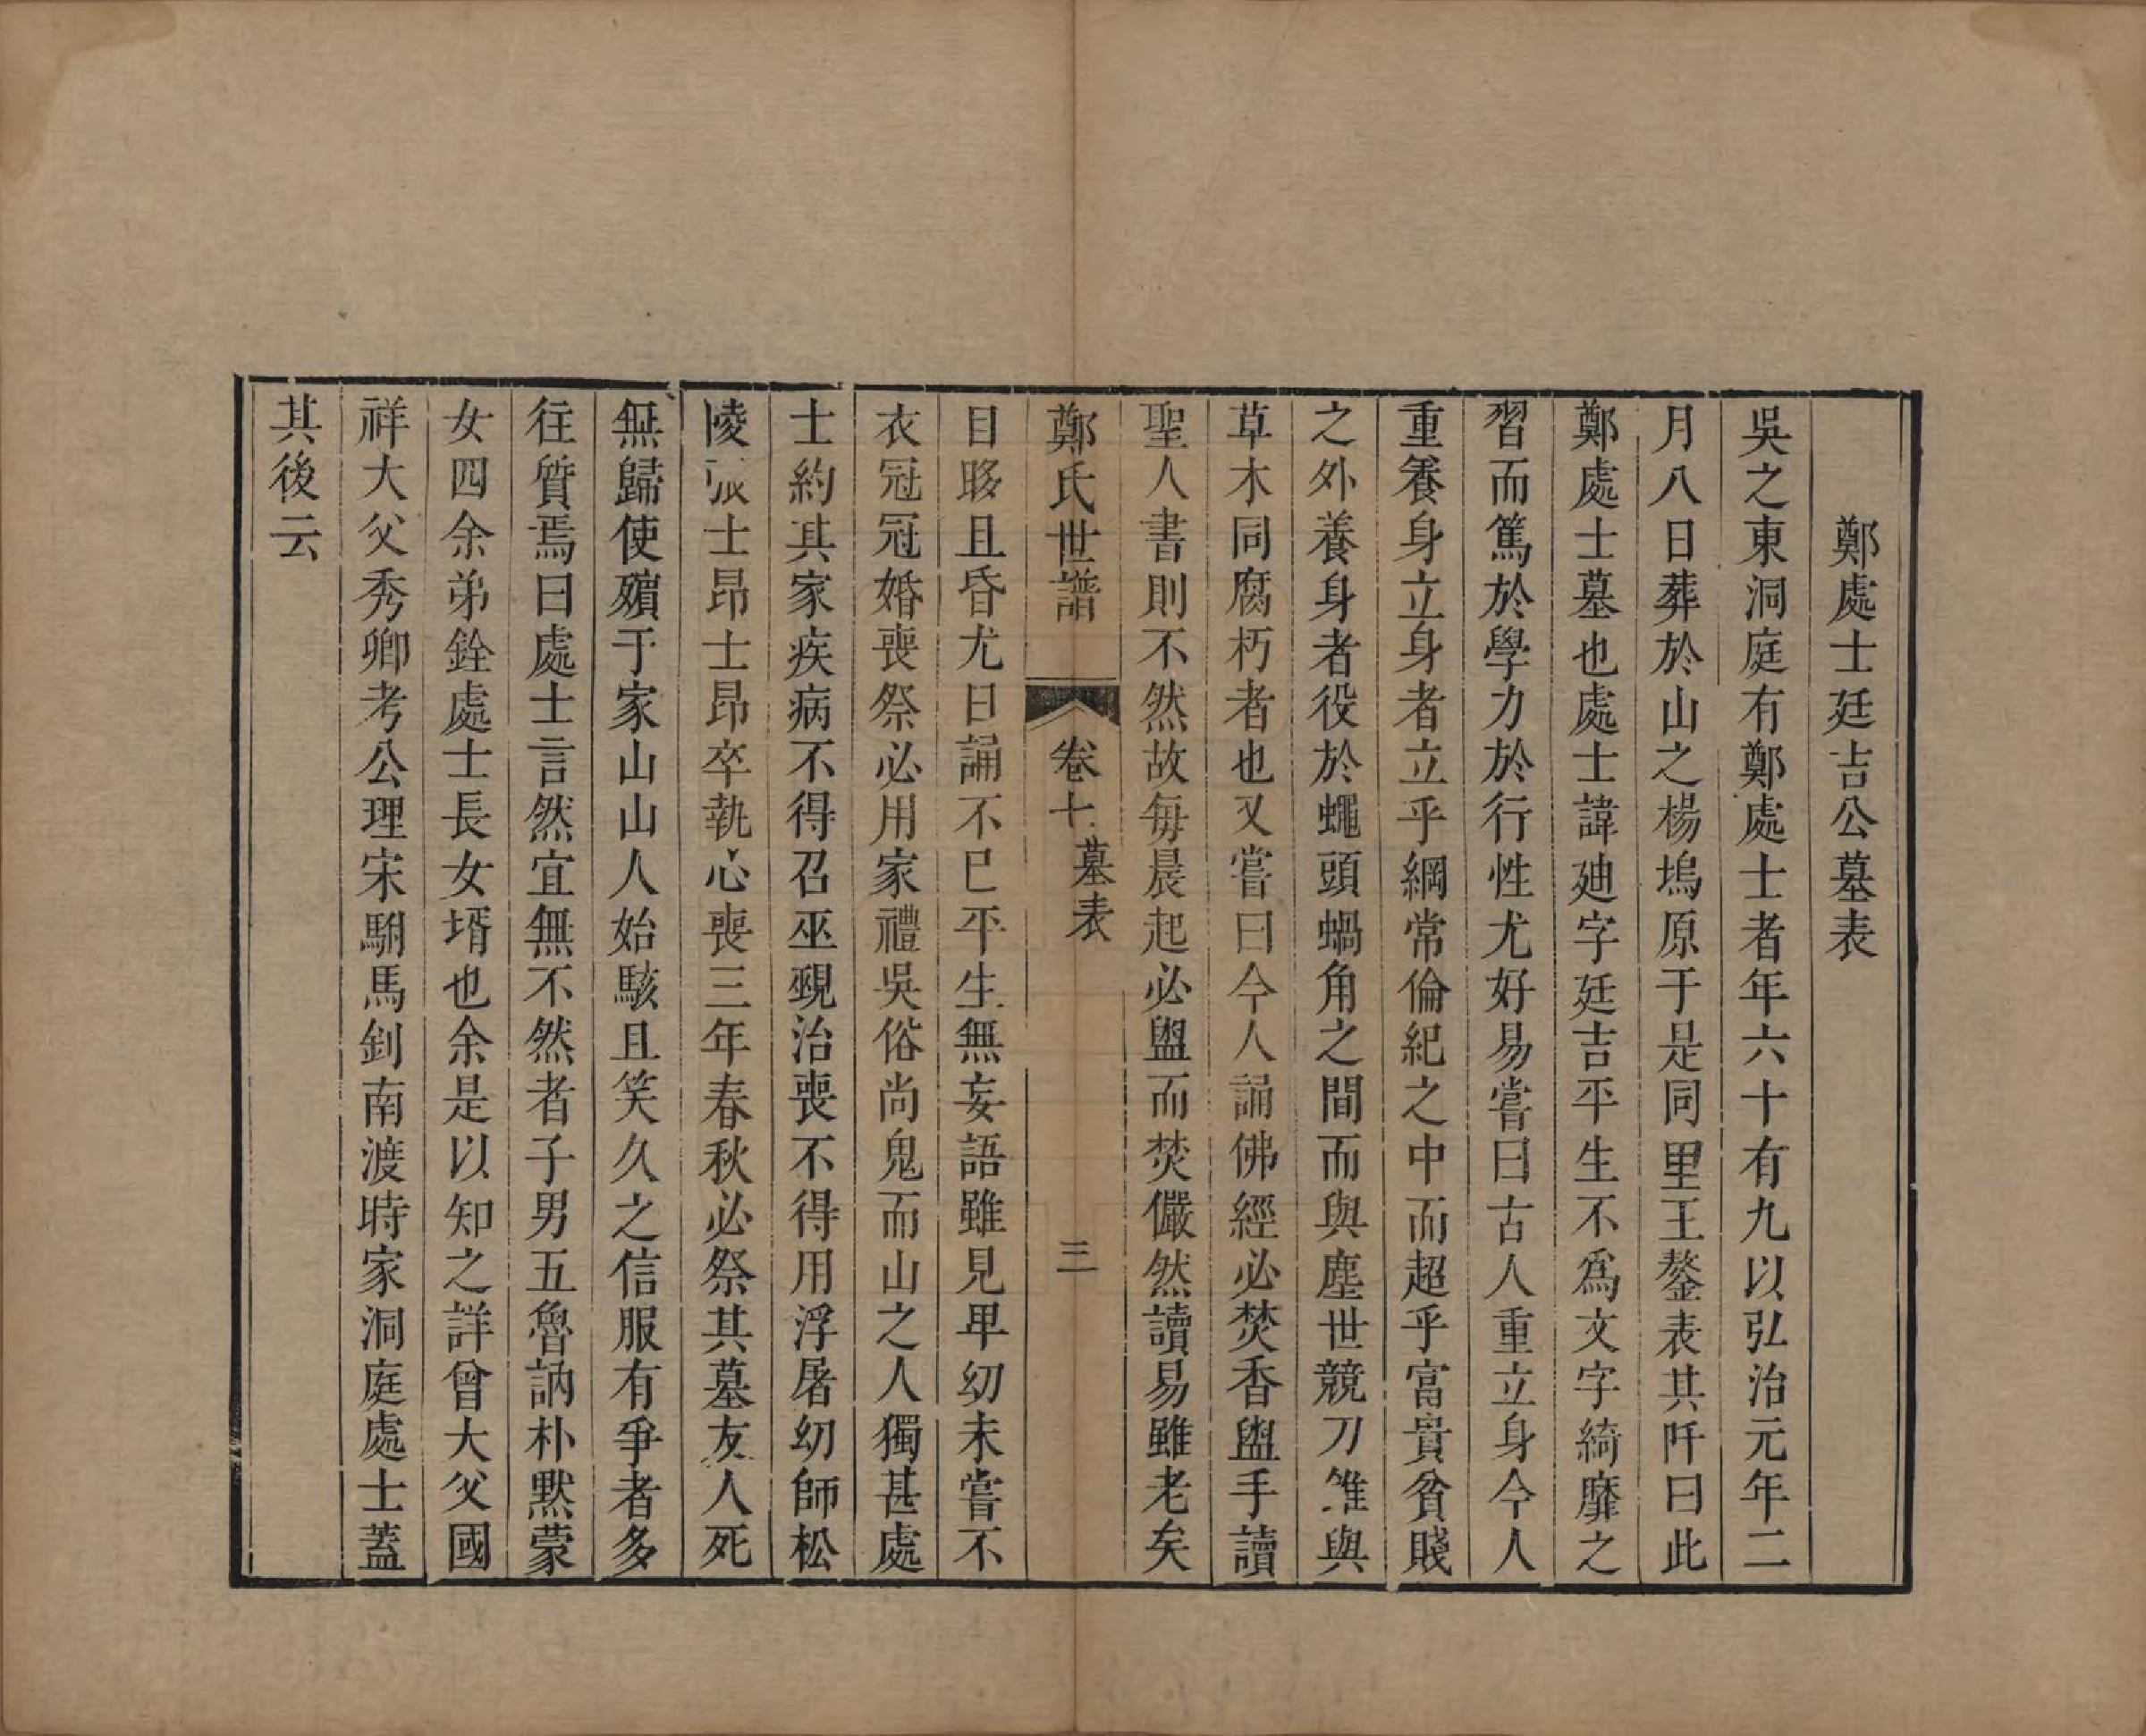 鄭處士廷吉公墓表
吳之東洞庭有鄭處士者年六十有九以弘治元年二
月八日葬於山之楊塢原于是同里王鏊表其阡曰此
鄭處士墓也處士諱廸字廷吉平生不爲文字綺靡之
習而篤於學力於行性尤好易嘗曰古人重立身今人
重養身立身者立乎綱常倫紀之中而超乎富貴貧賤
之外養身者役於蠅頭蝸角之間而與塵世競刀錐與
草木同腐朽者也又嘗曰今人誦佛經必焚香盥手讀
聖人書則不然故每晨起必盥而焚儼然讀易雖老矣
鄭氏世譜
卷十
墓表
三
目眵且昏尤日誦不已平生無妄語雖見卑幼未嘗不
衣冠冠婚喪祭必用家禮吳俗尚鬼而山之人獨甚處
士約其家疾病不得召巫覡治喪不得用浮屠幼師松
陵張士昂士昂卒執心喪三年春秋必祭其墓友人死
無歸使殯于家山山人始駭且笑久之信服有爭者多
往質焉曰處士言然宜無不然者子男五魯訥朴默蒙
女四余弟銓處士長女壻也余是以知之詳曾大父國
祥大父秀卿考公理宋駙馬釗南渡時家洞庭處士蓋
其後云